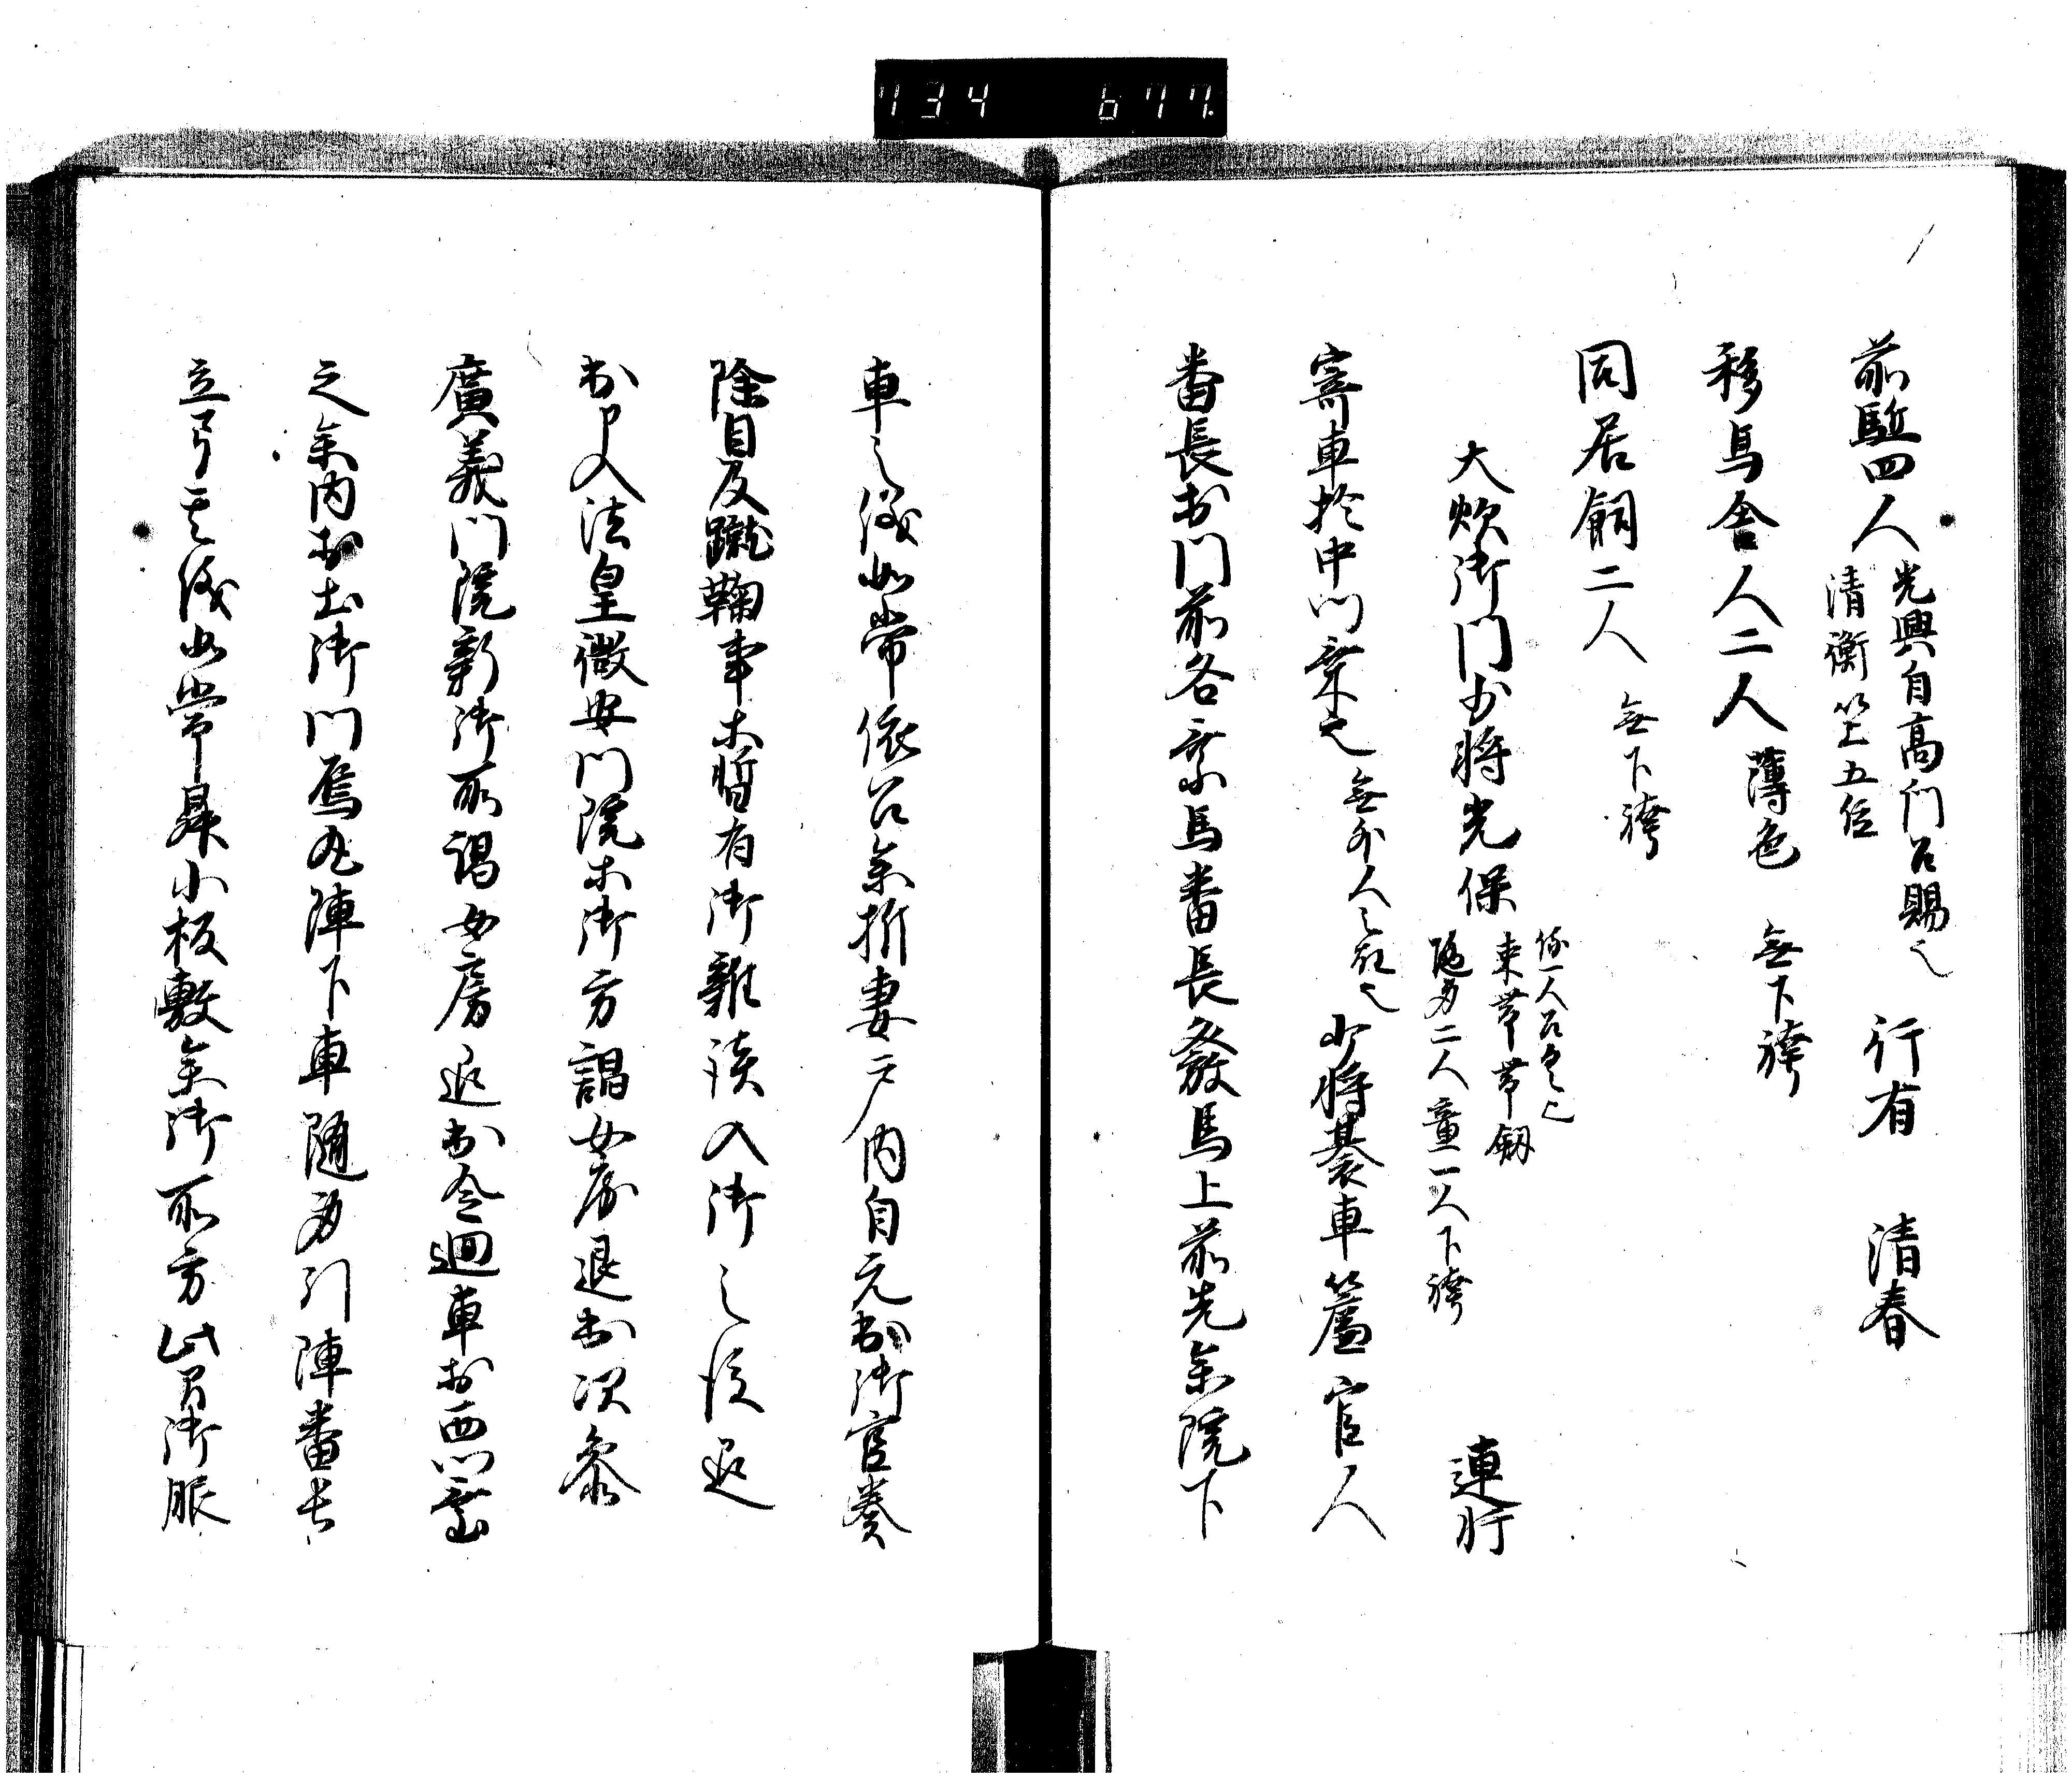 734 677.
前駈四人 光興自高門召賜之 行有 清春
清衡 以上五位
移馬舎人二人 薄色 無下襷
同居飼二人 無下襷
大炊御門少将光保 連軒
依一人召具之
束帯帯剱
随身二人童一人下襷
寄車於中門乗之 無外人之故也 少将褰車簾官人
番長於門前各乗馬番長発馬上前先参院下
車之儀如常依召参折妻戸内自元出御官奏
除目及蹴鞠事等暫有御雑談入御之後退
出更入法皇徽安門院等御方謁女房退出次参
廣義門院新御所謁女房退出令廻車於西門寄
之参内於土御門烏丸陣下車随身引陣番長
立弓其儀如常昇小板敷参御所方此間御服